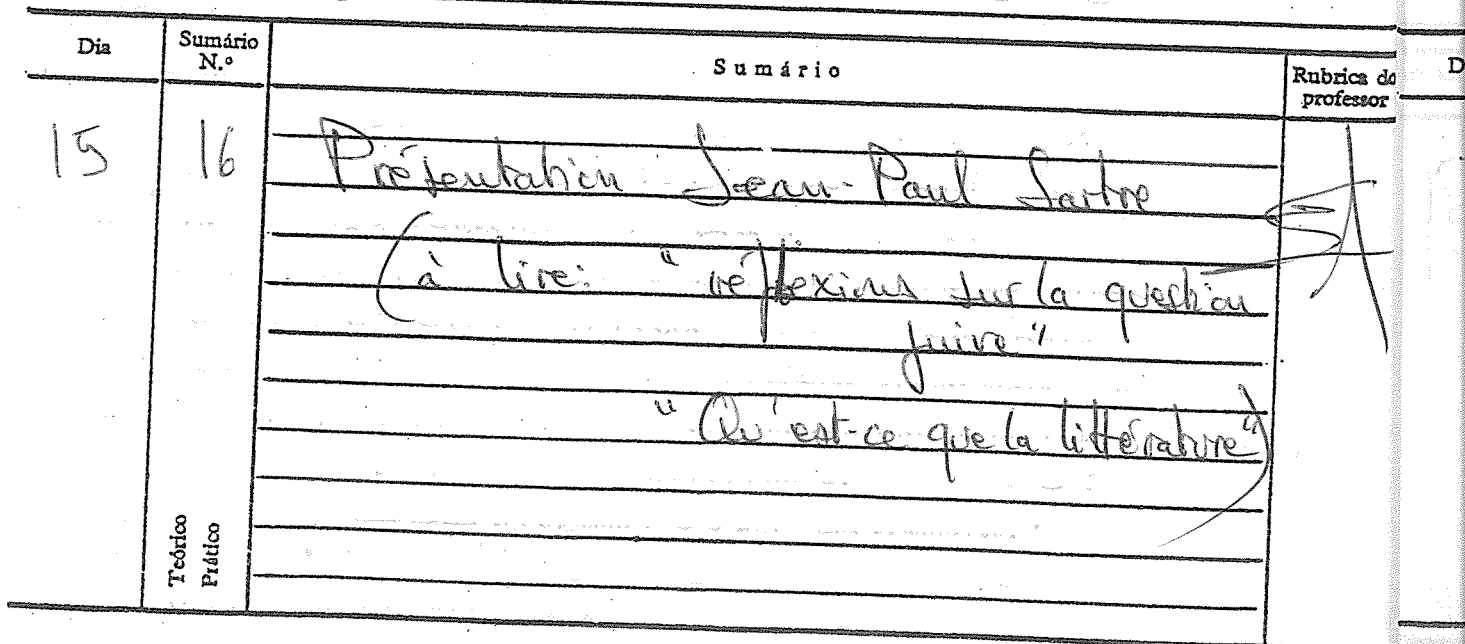 Dia
Sumário N.º
Sumário
Rubrica do professor
D
15
16
Présentation Jean-Paul Sartre
(à lire: "réflexions sur la question
juive"
"Qu'est-ce que la littérature")
Teórico
Prático